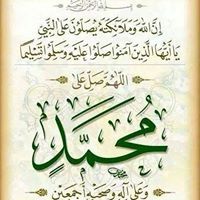 بسم الله الرحمن الرحيم
إِنَّ اللَّهَ وَمَلَائِكَتَهُ يُصَلُّونَ عَلَى النَّبِيِّ
يَا أَيُّهَا الَّذِينَ آمَنُوا صَلُّوا عَلَيْهِ وَسَلِّمُوا تَسْلِيمًا
اللَّهُمَّ صَلِّ عَلَى
مُحَمَّدٍ
وَعَلَى آلِهِ وَصَحْبِهِ أَجْمَعِينَ